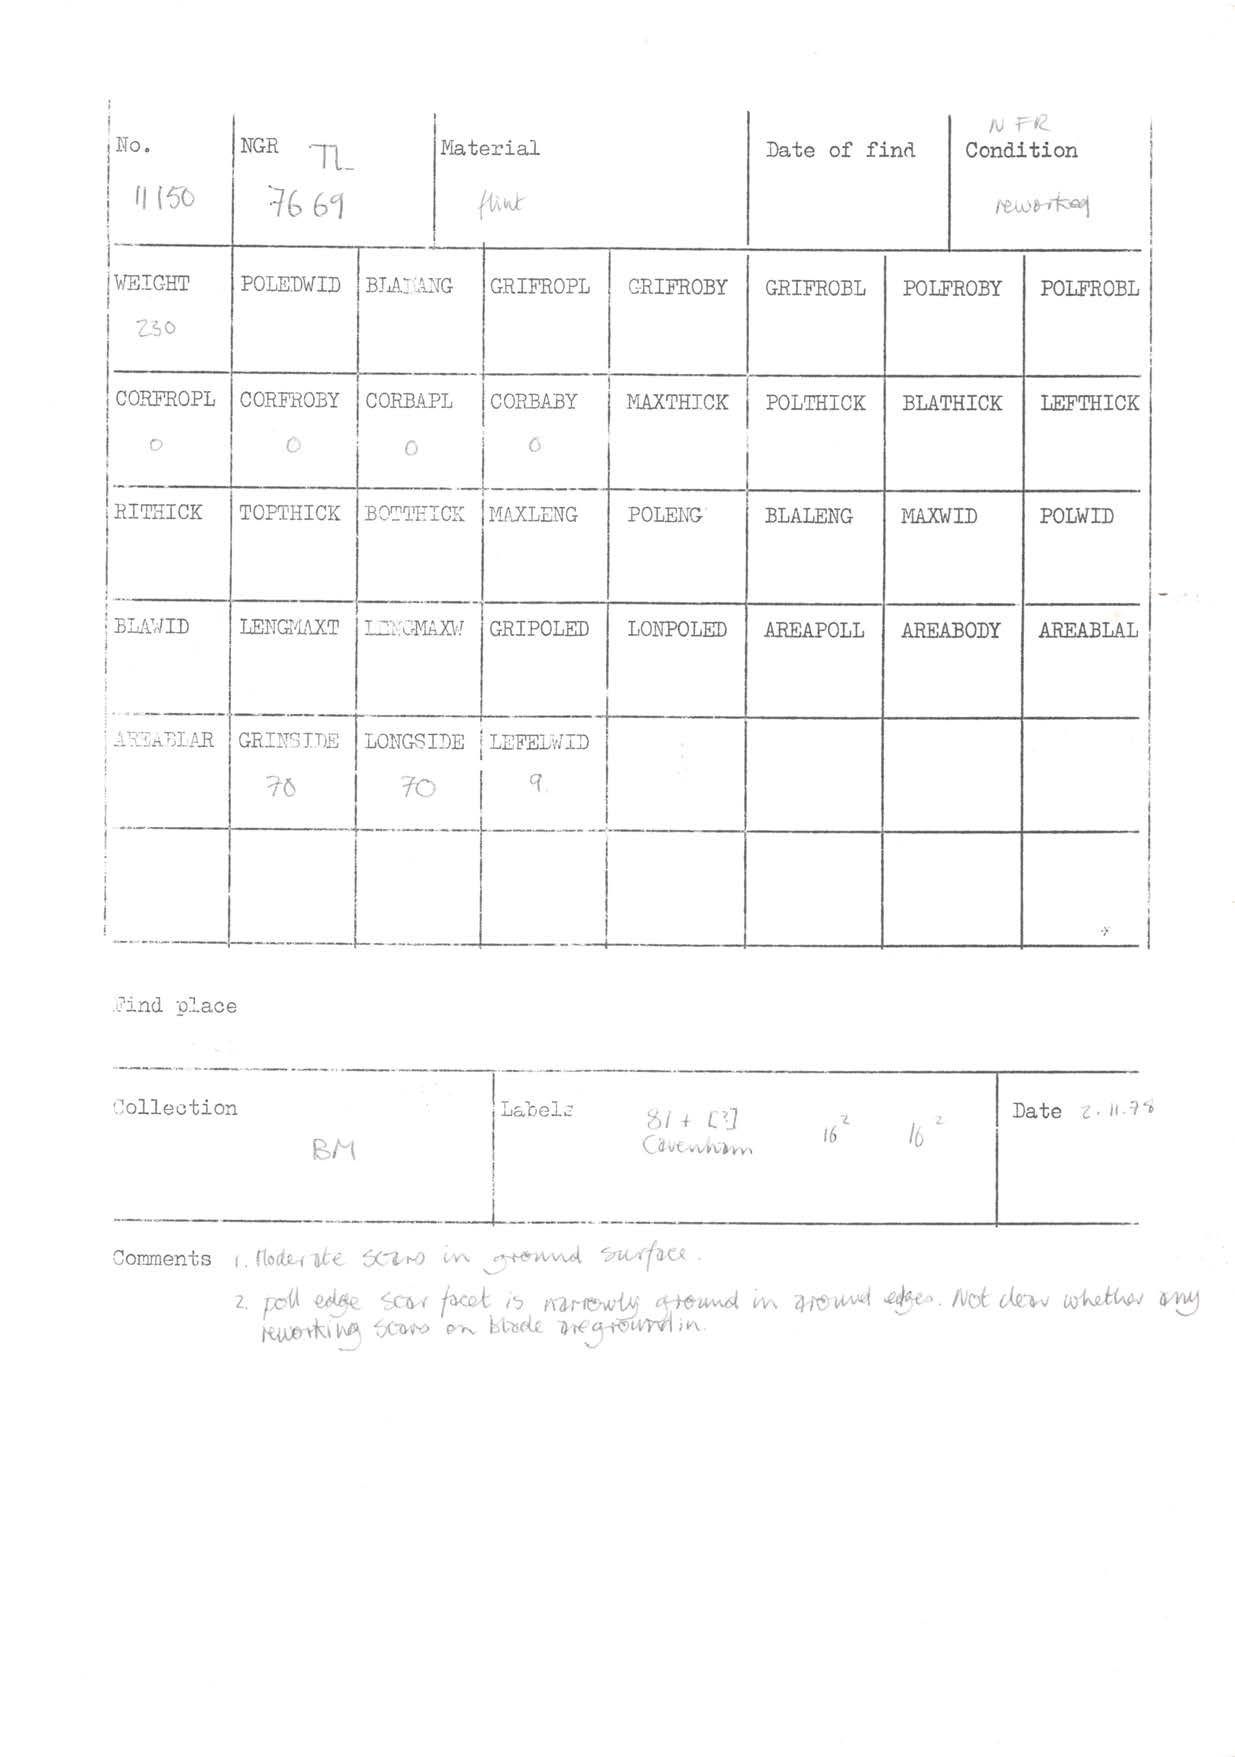 NFR
No. NGR TL Material Date of find Condition
11150 7669 flint reworked
WEIGHT POLEDWID BLAPLANG GRIFROPL GRIFROBY GRIFROBL POLFROBY POLFROBL
230
CORFROPL CORFROBY CORBAPL CORBABY MAXTHICK POLTHICK BLATHICK LEFTHICK
0 0 0 0
RITHICK TOPTHICK BOTTHICK MAXLENG POLENG BLALENG MAXWID POLWID
BLAWID LENGMAXT LENGMAXW GRIPOLED LONPOLED AREAPOLL AREABODY AREABLAL
AREABLAR GRINSIDE LONGSIDE LEFELWID
70 70 9.
Find place
Collection Labels 81 + [?] Date 2.11.78
BM Cavenham 16² 16²
Comments 1. Moderate scars in ground surface.
2. poll edge scar facet is narrowly ground in around edges. Not clear whether any
reworking scars on blade are ground in.